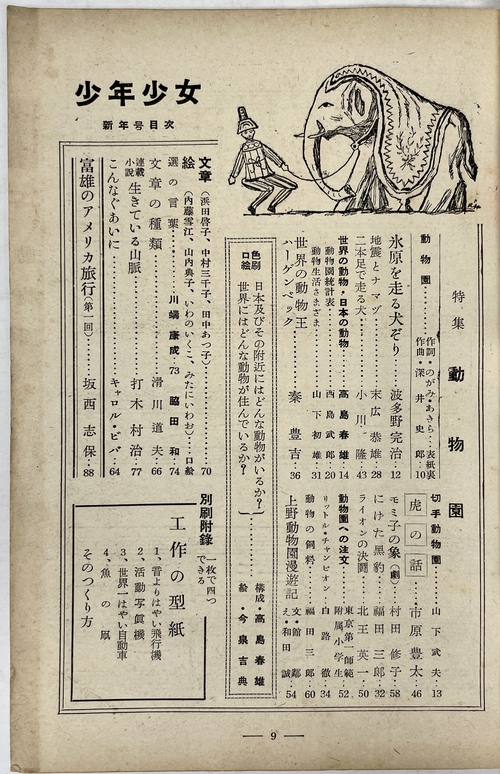 少年少女
新年号目次
特集 動物園
動物園 作詞・のがみ・あきら…表紙裏
作曲・深井史郎…10
氷原を走る犬ぞり…波多野完治…12
地震とナマヅ…末広恭雄…28
二本足で走る犬…小川隆…43
世界の動物・日本の動物…高島春雄…14
動物園統計表…西島武郎…20
動物生活さまざま…山下初雄…31
世界の動物王
ハーゲンベック…秦豊吉…36
切手動物園…山下武夫…13
虎の話…市原豊太…46
モミ子の象(劇)…村田修子…58
にけた黒豹…福田三郎…32
ライオンの決闘…北王英一…50
動物園への注文…東京第一師範附属小学生…52
リットル・チャンピオン…白路徹…34
動物の飼料…福田三郎…60
上野動物園漫遊記…文・館鄰
え・和田誠…54
色刷口絵
日本及びその附近にはどんな動物がいるか?
世界にはどんな動物が住んでいるか?
構成・高島春雄
絵・今泉吉典
文章(浜田啓子、中村三千子、田中あつ子)…70
絵(内藤雪江、山内典子、いわのいくこ、みたにいわお)…口絵
選の言葉…川端康成…73 脇田和…74
文章の種類…滑川道夫…66
連載小説 生きている山脈…打木村治…77
こんなぐあいに…キャロル・ビバ…64
富雄のアメリカ旅行(第一回)…坂西志保…88
別刷附録 一枚で四つできる
工作の型紙
1、音よりはやい飛行機
2、活動写真機
3、世界一はやい自動車
4、魚の凧
そのつくり方
— 9 —